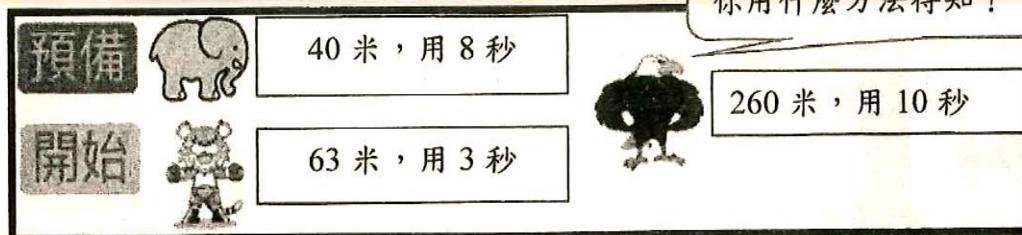 你用什麼方法得知？
預備
40 米，用 8 秒
260 米，用 10 秒
開始
63 米，用 3 秒